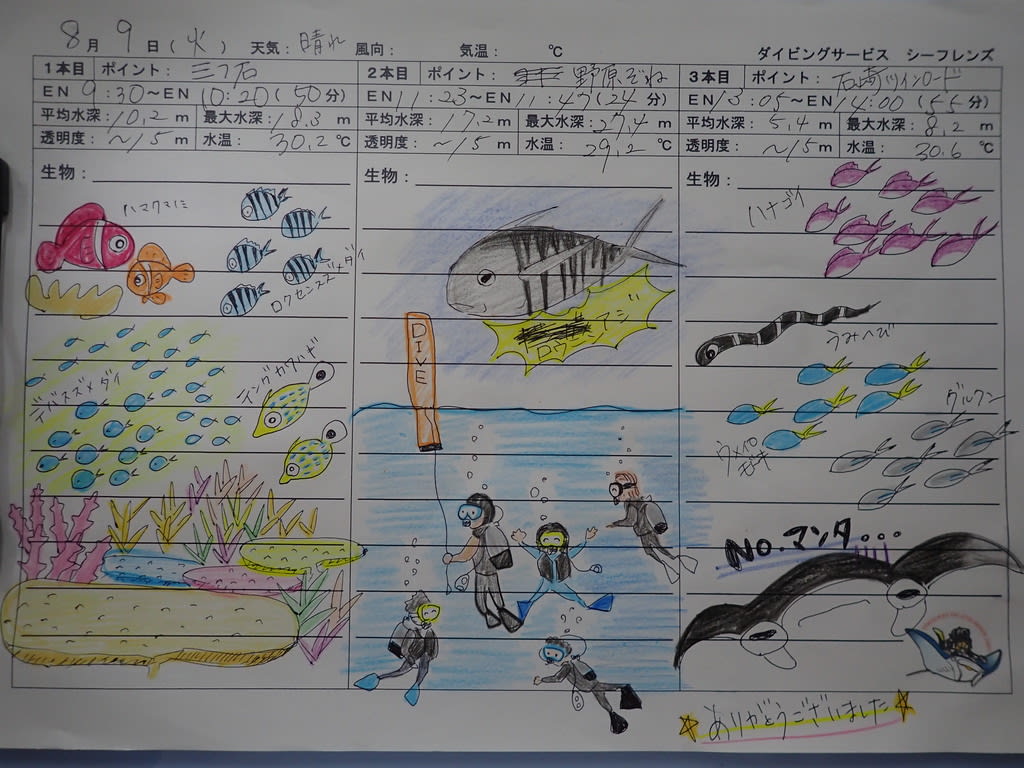 8月 9日(火) 天気: 晴れ 風向: 気温: ℃
ダイビングサービス シーフレンズ
1本目 ポイント: 三つ石
EN 9:30～EN 10:20(50分)
平均水深:10.2m 最大水深:18.3m
透明度:～15m 水温: 30.2℃
生物:
ハマクマノミ
ロクセンスズメダイ
デバスズメダイ
テングカワハギ
2本目 ポイント: 野原ぞね
EN 11:23～EN 11:47(24分)
平均水深:17.2m 最大水深:27.4m
透明度:～15m 水温: 29.2℃
生物:
ロウニンアジ
DIVE
3本目 ポイント: 石崎ツインロード
EN 13:05～EN 14:00(55分)
平均水深:5.4m 最大水深:8.2m
透明度:～15m 水温: 30.6℃
生物:
ハナゴイ
うみへび
グルクン
ウメイロ
モドキ
NO.マンタ...
ありがとうございました